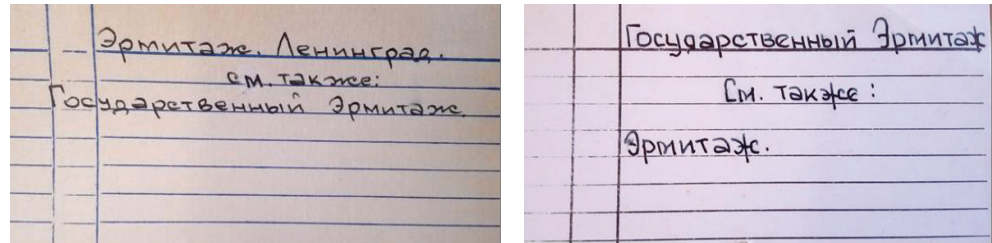 Эрмитаж. Ленинград.
см. также:
Государственный Эрмитаж.
Государственный Эрмитаж
См. также:
Эрмитаж.